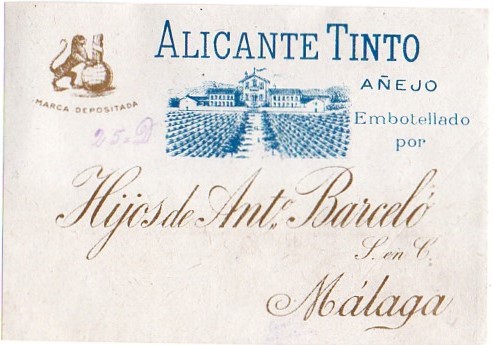 ALICANTE TINTO
AÑEJO
Embotellado
por
MARCA DEPOSITADA
25=D
Hijos de Antº. Barceló
S. en C.
Málaga